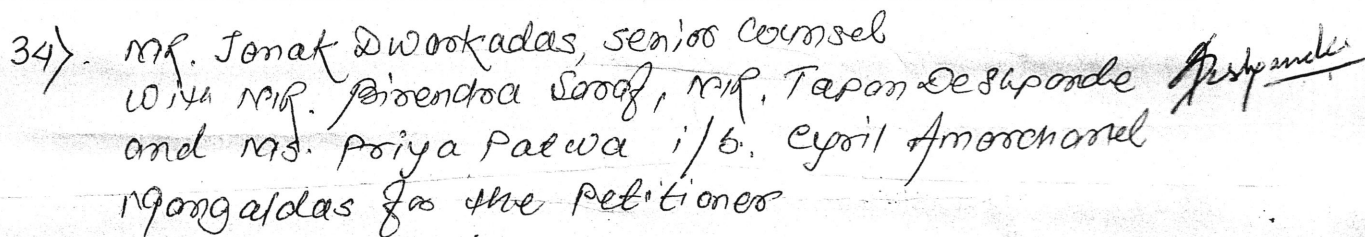 34). MR. Janak Dwarkadas, senior Counsel
with MR. Birendra Saraf, MR. Tapan Deshpande Deshpande
and Ms. Priya Patwa i/b. Cyril Amarchand
Mangaldas for the Petitioner